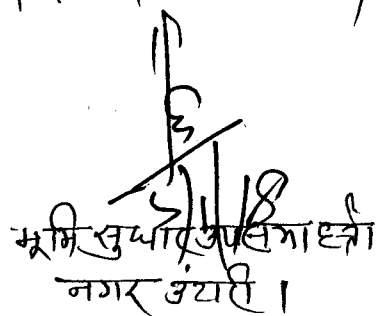 भूमि सुधार उपसमाहर्त्ता
नगर उंटारी ।